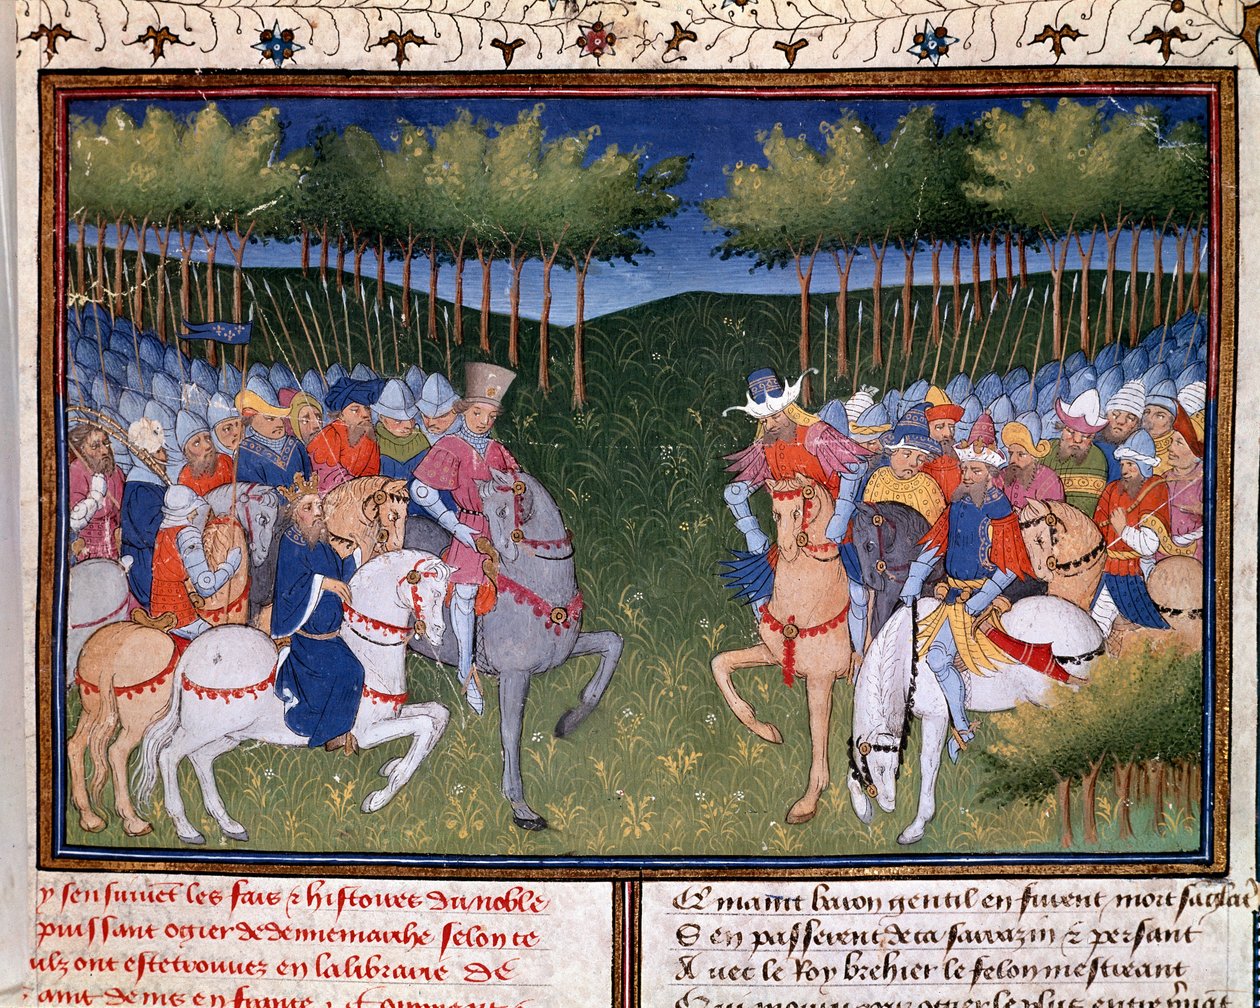 y sensuiuet les fais & histoires du noble
puissant ogier de dennemarche selon ce
ulz ont este trouuez en la librarie de
aint denis en france
Et maint baron gentil en furent mort
S en passerent deca sarrazin & persant
A uec le Roy brehier le felon mescreant